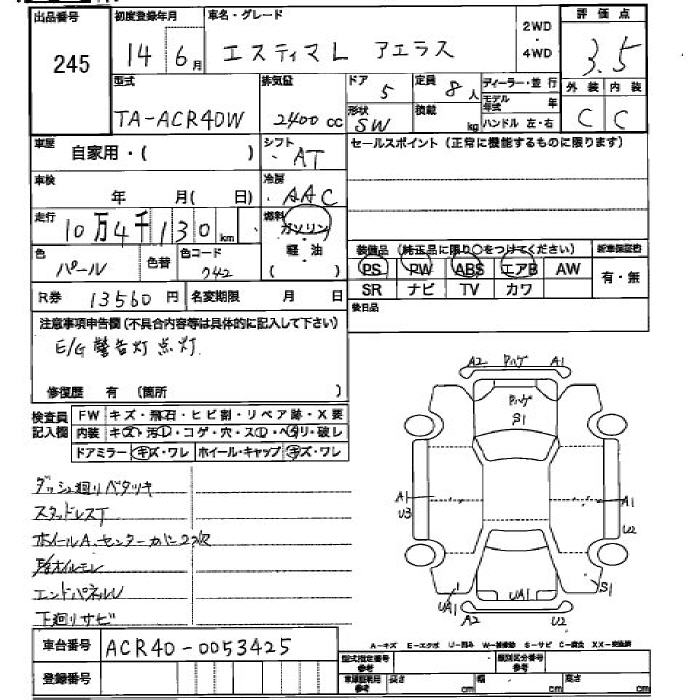 出品番号 初度登録年月 車名・グレード 2WD・4WD 評価点
245 14年6月 エスティマL アエラス 3.5
型式 排気量 ドア 定員 ディーラー・並行 外装 内装
TA-ACR40W 2400cc 5 8人 モデル年式 年 C C
形状 積載 ハンドル 左・右
SW kg
車歴 自家用・( ) シフト ・AT セールスポイント(正常に機能するものに限ります)
車検 年 月(日) 冷房 ・AAC
走行 10万4千130km 燃料 ガソリン・軽油
装備品(純正品に限り○をつけてください) 新車保証書
色 パール 色替 色コード 042
PS PW ABS エアB AW 有・無
SR ナビ TV カワ
R券 13560円 名変期限 月 日
後日品
注意事項申告欄(不具合内容等は具体的に記入して下さい)
E/G警告灯点灯
修復歴 有(箇所 )
検査員記入欄 FW キズ・飛石・ヒビ割・リペア跡・X要
内装 キズ・汚レ・コゲ・穴・スレ・ヘタリ・破レ
ドアミラー キズ・ワレ ホイール・キャップ キズ・ワレ
A2 ハゲ A1
ハゲ
S1
A1 A1
U3 U2
S1
UA1 UA1
A2 U2
ダッシュ廻りベタツキ
スタッドレスT
ホイールA、センターカバー2欠
オイルモレ
エンドパネルU
下廻りサビ
車台番号 ACR40-0053425
A-キズ E-エクボ U-凹み W-補修跡 S-サビ C-腐食 XX-交換済
登録番号 型式指定番号 類別区分番号
長さ cm 幅 cm 高さ cm